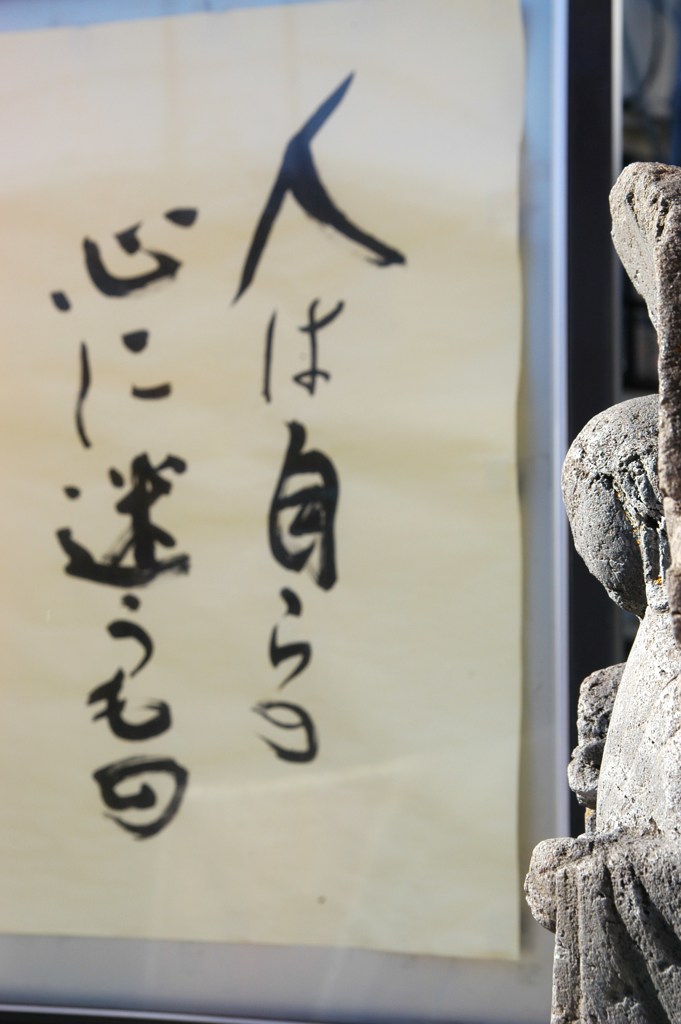 人は自らの
心に迷うもの